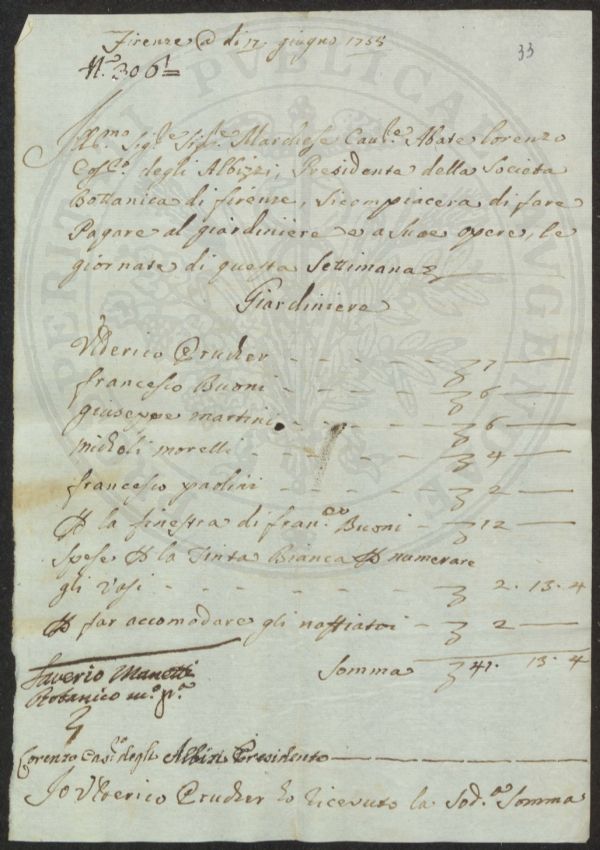 Firenze @ di 17 giugno 1755
33
N.º 306
Ill.mo Sig.re Sig.re Marchese Cav.re Abate Lorenzo
degli Albizzi, Presidente della Societa
Bottanica di firenze, Sicompiacera di fare
Pagare al giardiniere e a Sue opere, le
giornate di questa Settimana
Giardiniere
Ulderico Prucker - - - - 7 —
francesco Buoni - - - - 6 —
giuseppe martini - - - - 6 —
morelli - - - - 4 —
francesco paolini - - - - 2 —
P la finestra di fran.co Buoni - 12 —
Spese P la Tinta Bianca P numerare
gli Vasi - - - - 2. 13. 4
P far accomodare gli naffiatoi - 2 —
Somma 41. 13. 4
Saverio Manetti
Botanico m.º p.ª
Lorenzo degli Albizi Presidente
Io Ulderico Prucker ho ricevuto la Sod.ª Somma